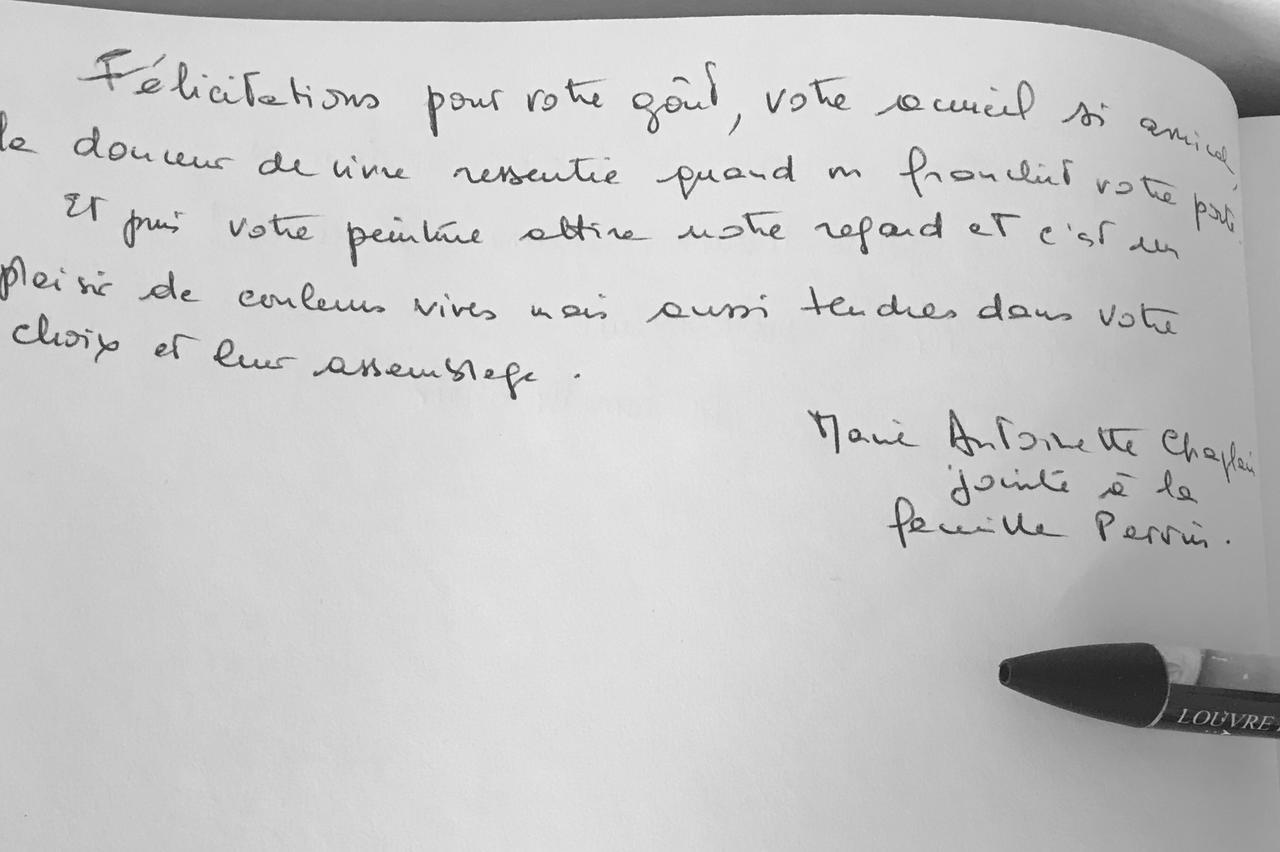 Félicitations pour votre goût, votre accueil si amical,
la douceur de vivre ressentie quand on franchit votre porte.
Et puis votre peinture attire notre regard et c'est un
plaisir de couleurs vives mais aussi tendres dans votre
choix et leur assemblage.
Marie Antoinette Chaplain
jointe à la
famille Perrin.
LOUVRE